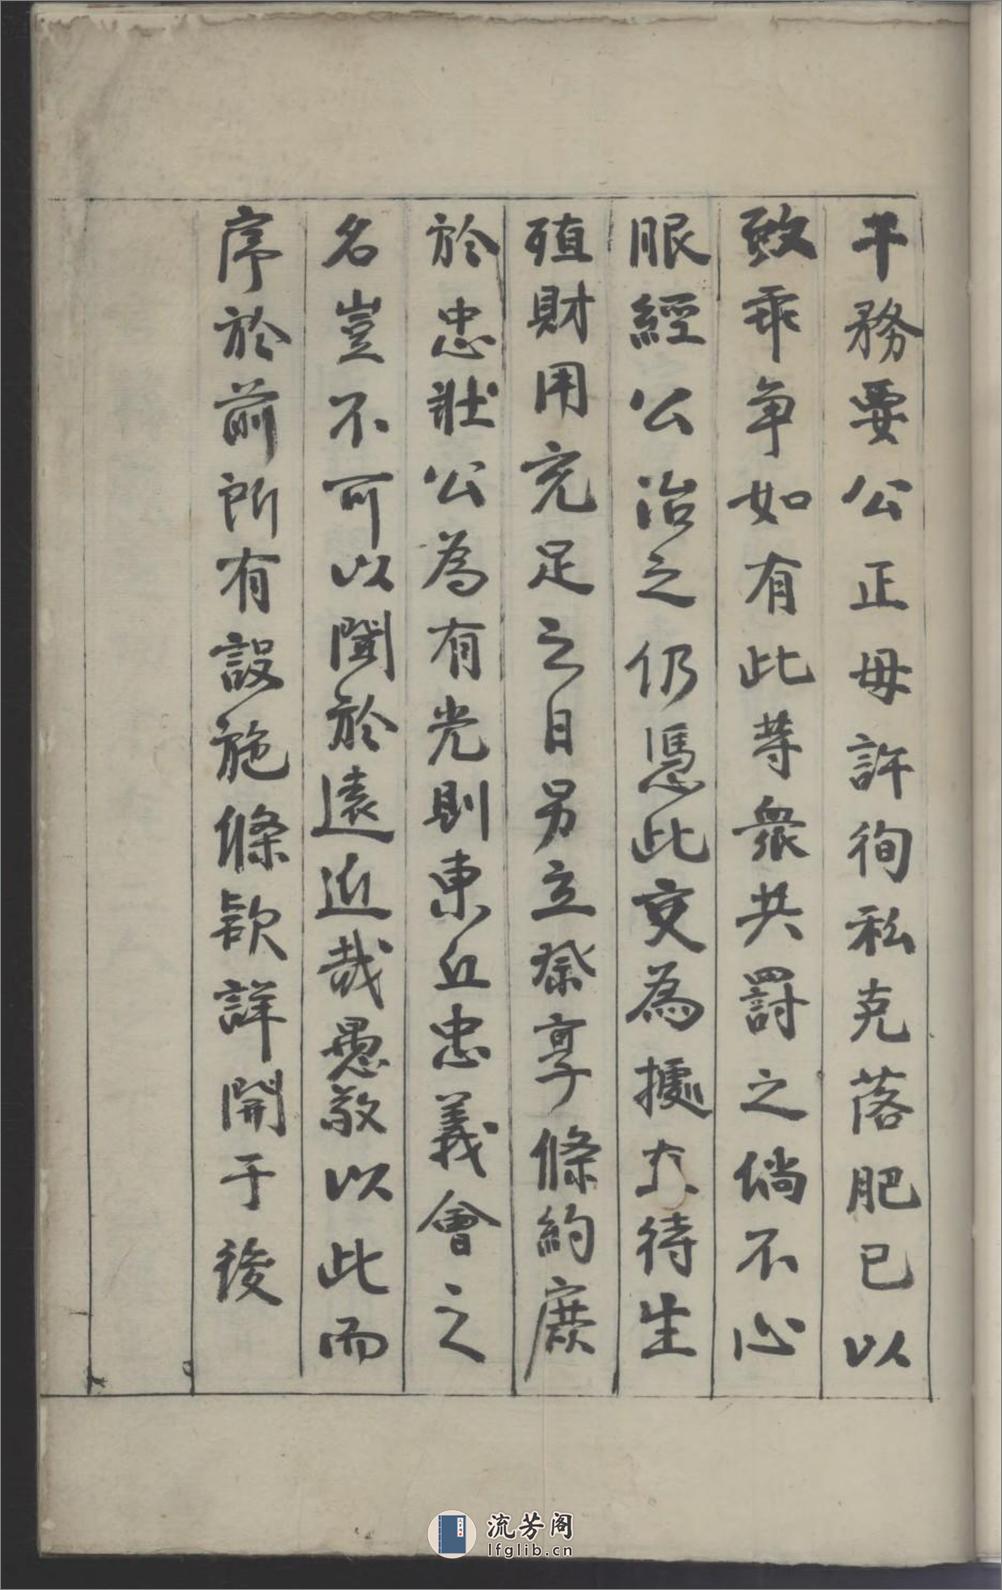 平務要公正毋許徇私克落肥已以
致乖争如有此等衆共罰之倘不心
服經公治之仍憑此文為據 待生
殖財用充足之日另立祭享條約庶
於忠壯公為有光則東丘忠義會之
名豈不可以聞於遠近哉愚敬以此而
序於前所有設施條款詳開于後
流芳阁
lfglib.cn